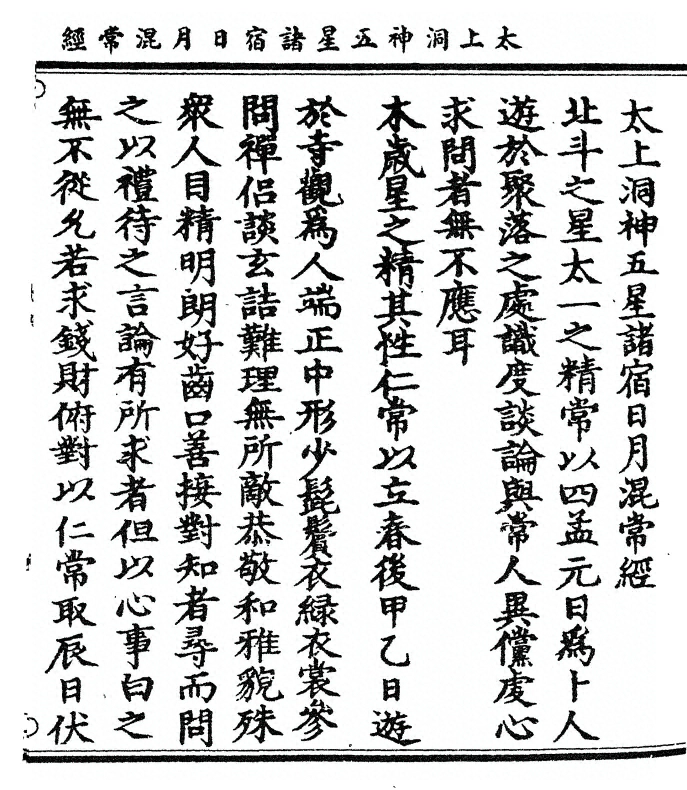 太上洞神五星諸宿日月混常經
太上洞神五星諸宿日月混常經
北斗之星太一之精常以四孟元日爲卜人
遊於聚落之處識度談論與常人異儻虔心
求問者無不應耳
木歲星之精其性仁常以立春後甲乙日遊
於寺觀爲人端正中形少髭鬢衣緑衣裳參
問禪侣談玄詰難理無所敵恭敬和雅貌殊
衆人目精明朗好齒口善接對知者尋而問
之以禮待之言論有所求者但以心事白之
無不從允若求錢財俯對以仁常取辰日伏